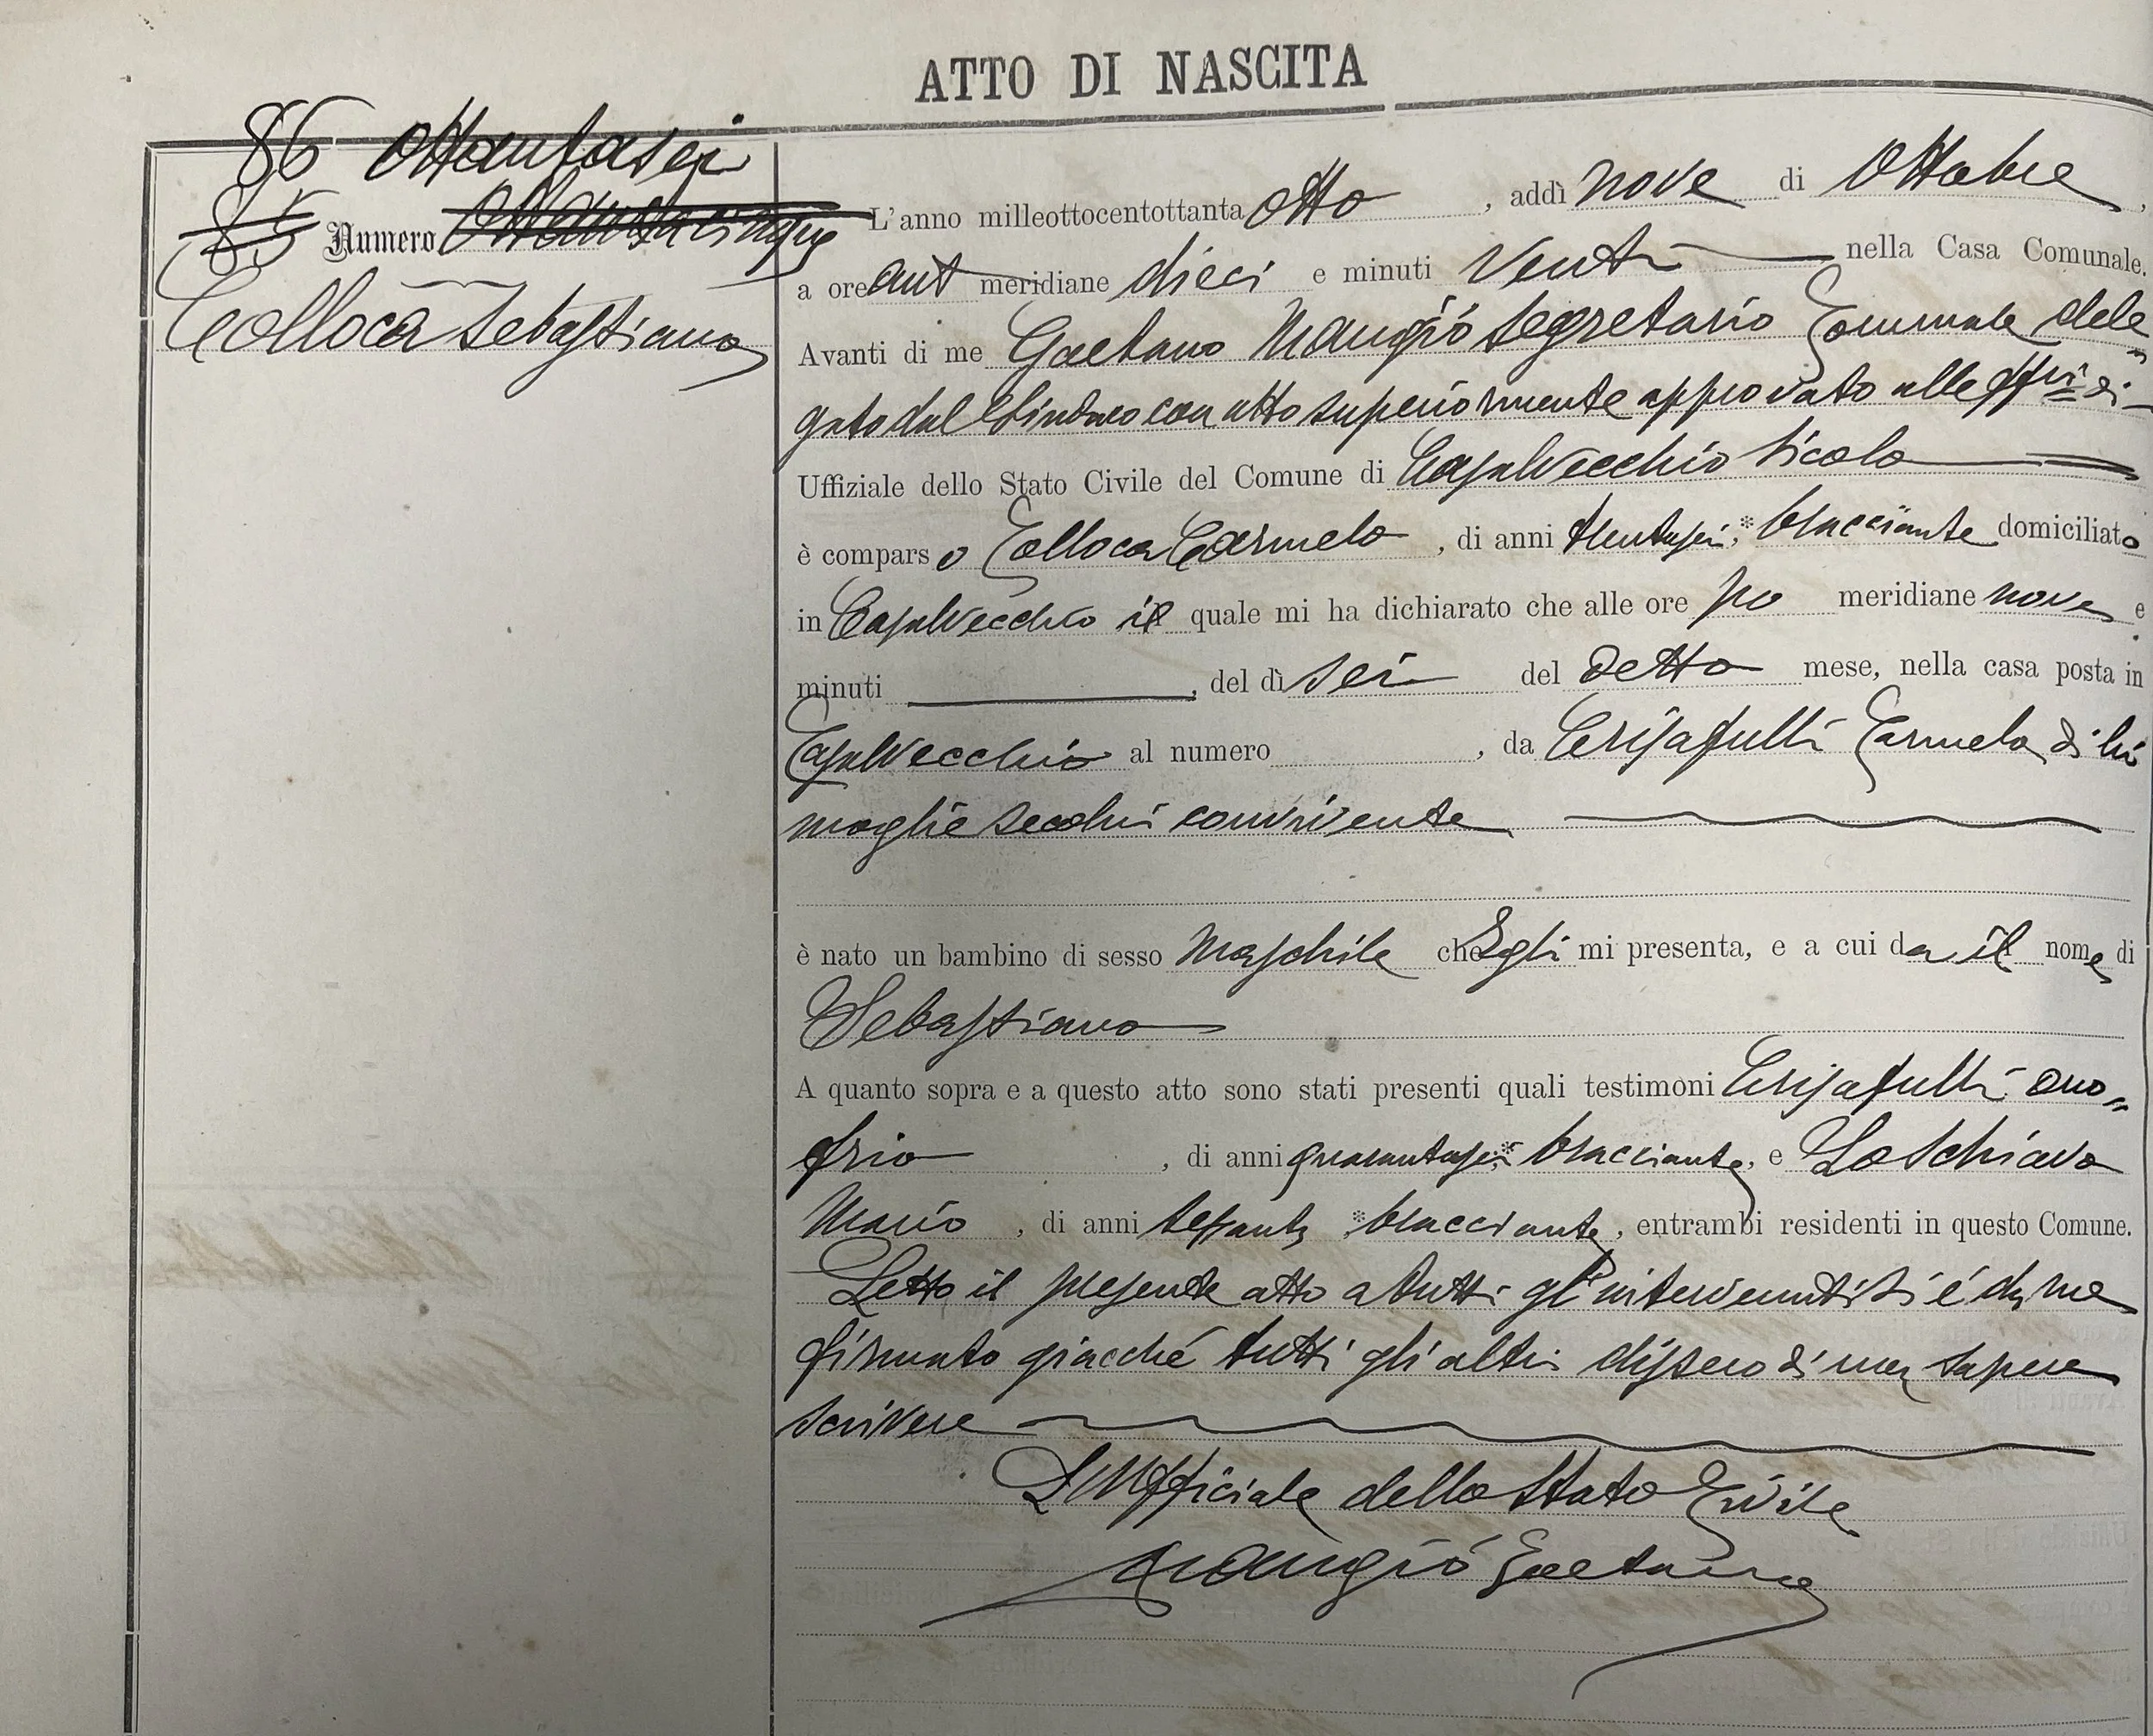 ATTO DI NASCITA
86 Ottantasei
85 Numero Ottantacinque
Collocà Sebastiano
L'anno milleottocentottanta otto, addì nove di Ottobre,
a ore ant meridiane dieci e minuti venti nella Casa Comunale.
Avanti di me Gaetano Mangiò Segretario Comunale dele=
gato dal Sindaco con atto superiormente approvato alle di
Uffiziale dello Stato Civile del Comune di Casalvecchio Siculo
è comparso Colloca Carmelo, di anni trentasei, bracciante domiciliato
in Casalvecchio il quale mi ha dichiarato che alle ore po meridiane nove e
minuti , del dì sei del detto mese, nella casa posta in
Casalvecchio al numero , da Crisafulli Carmela di lui
moglie secolui convivente
è nato un bambino di sesso maschile che Egli mi presenta, e a cui da il nome di
Sebastiano
A quanto sopra e a questo atto sono stati presenti quali testimoni Crisafulli Ono=
frio , di anni quarantasei bracciante, e Lo Schiavo
Mario, di anni sessanta bracciante, entrambi residenti in questo Comune.
Letto il presente atto a tutti gl'intervenuti si é da me
firmato giacché tutti gli altri dissero di non sapere
scrivere
L'Ufficiale dello Stato Civile
Mangiò Gaetano